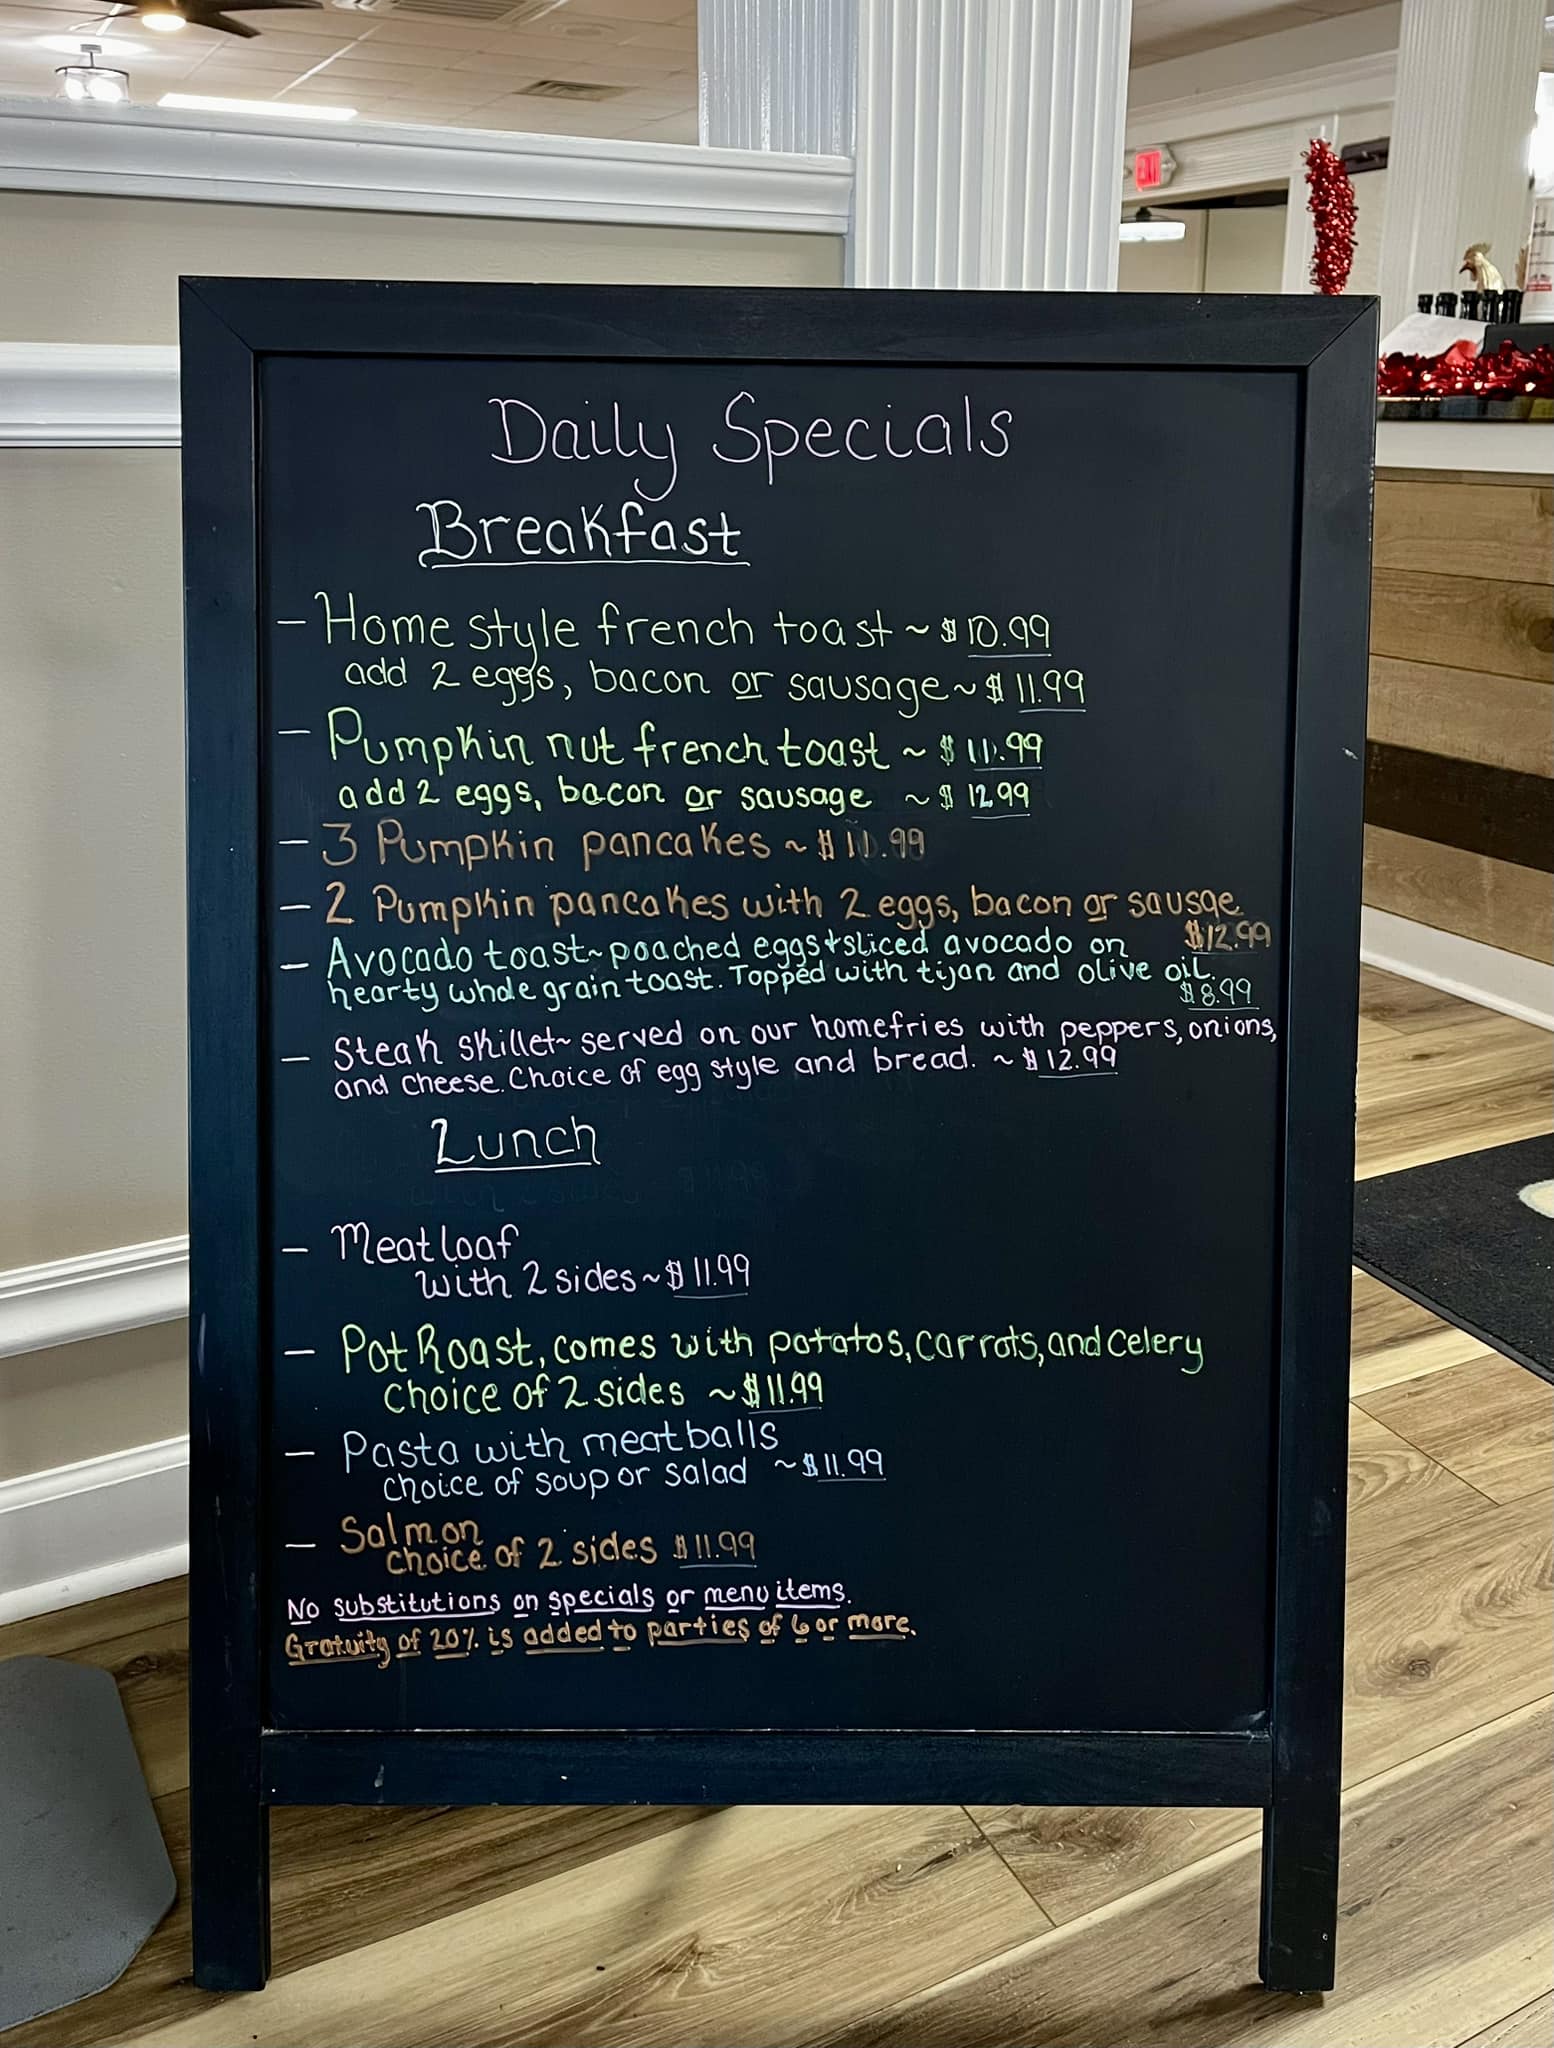 Daily Specials
Breakfast
- Home style french toast ~ $10.99
add 2 eggs, bacon or sausage ~ $11.99
- Pumpkin nut french toast ~ $11.99
add 2 eggs, bacon or sausage ~ $12.99
- 3 Pumpkin pancakes ~ $11.99
- 2 Pumpkin pancakes with 2 eggs, bacon or sausge
$12.99
- Avocado toast~ poached eggs + sliced avocado on
hearty whole grain toast. Topped with tijan and olive oil.
$8.99
- Steak skillet~ served on our homefries with peppers, onions,
and cheese. Choice of egg style and bread. ~ $12.99
Lunch
- Meatloaf
with 2 sides ~ $11.99
- Pot Roast, comes with potatos, carrots, and celery
choice of 2 sides ~ $11.99
- Pasta with meatballs
choice of soup or salad ~ $11.99
- Salmon
choice of 2 sides $11.99
No substitutions on specials or menu items.
Gratuity of 20% is added to parties of 6 or more.